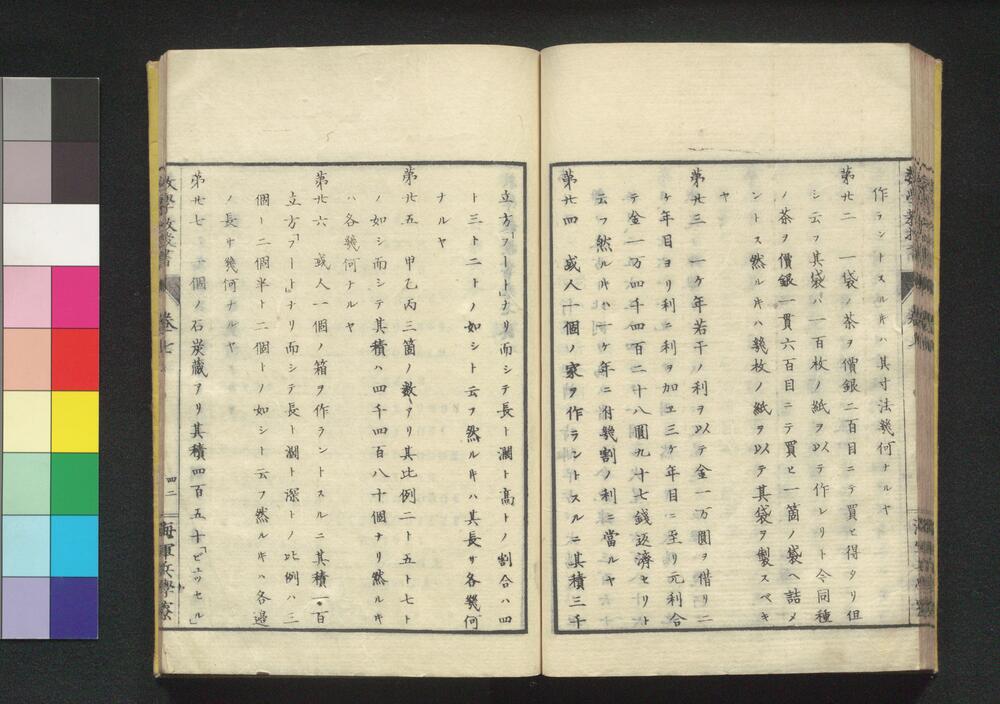 作ラントスルキハ其寸法幾何ナルヤ
第廿二 一袋ノ茶ヲ價銀二百目ニテ買ヒ得タリ但
シ云フ其袋ハ一百枚ノ紙ヲ以テ作レリト今同種
ノ茶ヲ價銀一貫六百目ニテ買ヒ一箇ノ袋ヘ詰メ
ントス然ルキハ幾枚ノ紙ヲ以テ其袋ヲ製スベキ
ヤ
第廿三 一ケ年若干ノ利ヲ以テ金一万圓ヲ借リ二
ケ年目ヨリ利ニ利ヲ加エ三ケ年目ニ至リ元利合
テ金一万四千四百二十八圓九十七錢返濟セリト
云フ然ルキハ一ケ年ニ附幾割ノ利ニ當ルヤ
第廿四 或人一個ノ家ヲ作ラントスルニ其積三千
立方フートナリ而シテ長ト濶ト高トノ割合ハ四
ト三ト二トノ如シト云フ然ルキハ其長サ各幾何
ナルヤ
第廿五 甲乙丙三箇ノ數アリ其比例二ト五ト七ト
ノ如シ而シテ其積ハ四千四百八十個ナリ然ルキ
ハ各幾何ナルヤ
第廿六 或人一個ノ箱ヲ作ラントスルニ其積一・百
立方「フート」ナリ而シテ長ト濶ト深トノ比例ハ三
個ト二個半ト二個トノ如シト云フ然ルキハ各邉
ノ長サ幾何ナルヤ
第廿七 一個ノ石炭藏アリ其積四百五十「ビユッセル」
數學教授書 巻七 四二 海軍兵學寮